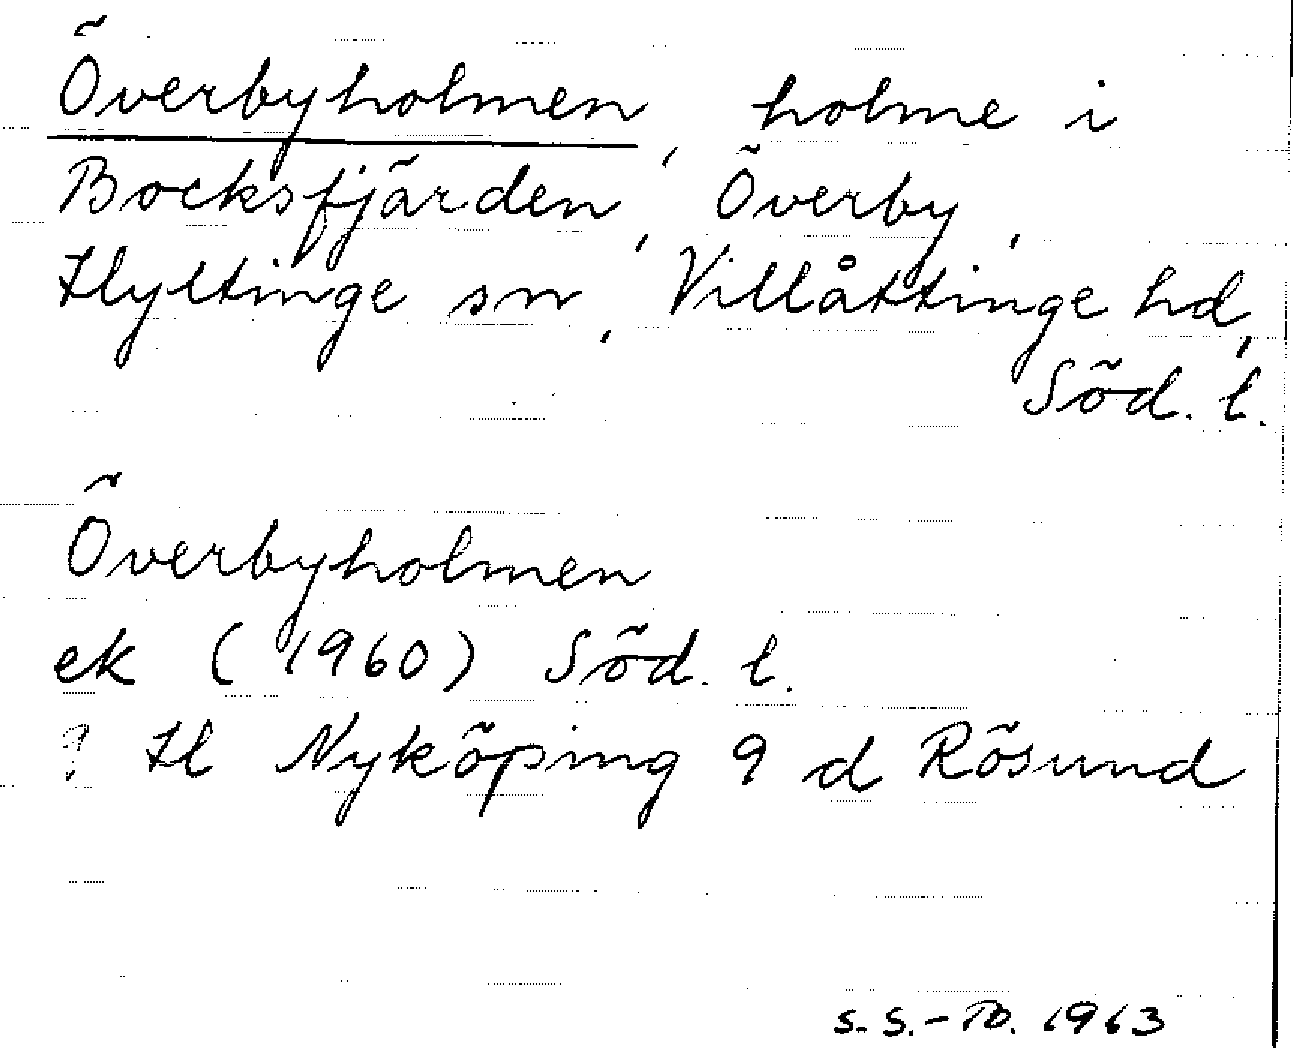 Överbyholmen, holme i
Bocksfjärden, Överby,
Hyltinge sn, Villåttinge hd,
Söd. l.
Överbyholmen
ek (1960) Söd. l.
? Hl Nyköping 9 d Rösund
S.S.- 1963